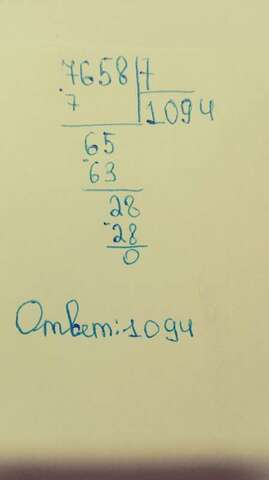 7658 7
-7 1094
65
-63
28
-28
0
Ответ: 1094